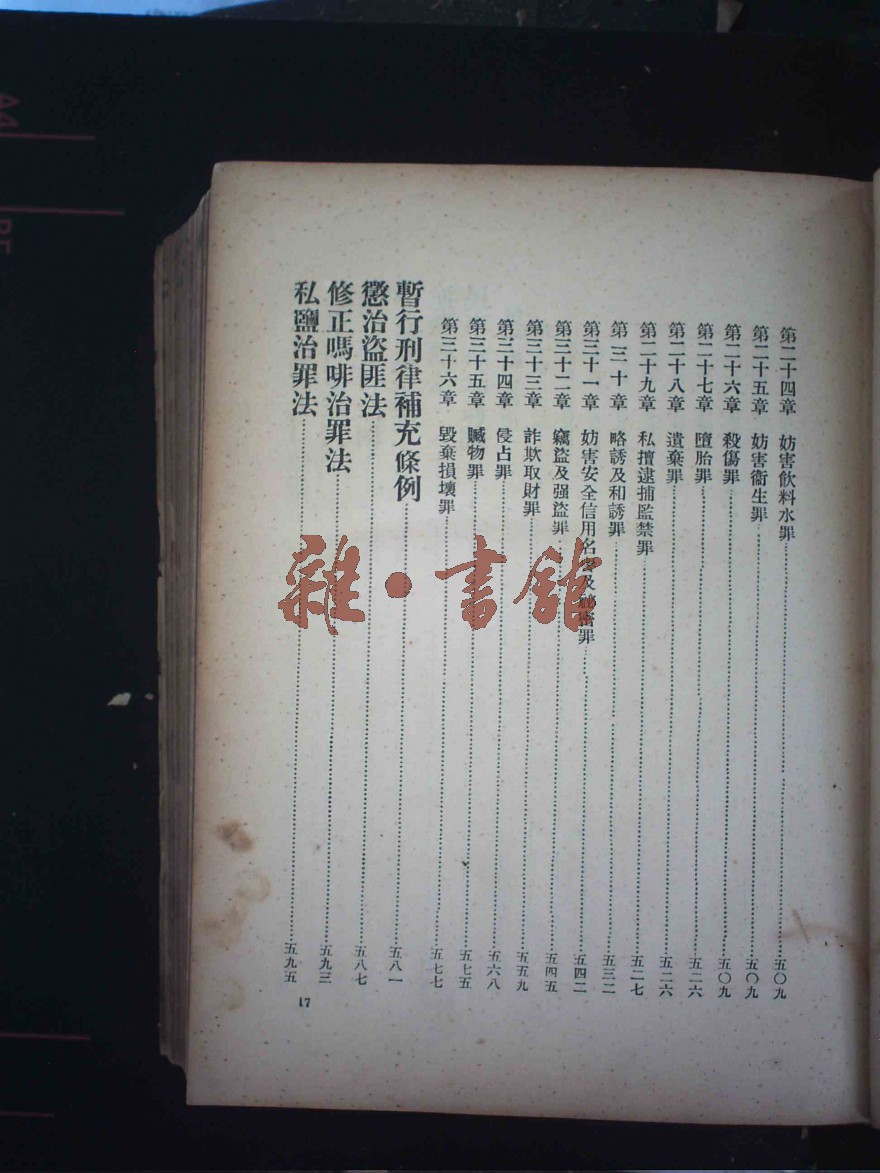 第二十四章　妨害飲料水罪……五〇九
第二十五章　妨害衞生罪……五〇九
第二十六章　殺傷罪……五〇九
第二十七章　墮胎罪……五二六
第二十八章　遺棄罪……五二六
第二十九章　私擅逮捕監禁罪……五二七
第三十章　略誘及和誘罪……五三二
第三十一章　妨害安全信用名譽及祕密罪……五四二
第三十二章　竊盜及强盜罪……五四五
第三十三章　詐欺取財罪……五五九
第三十四章　侵占罪……五六八
第三十五章　贓物罪……五七五
第三十六章　毀棄損壞罪……五七七
暫行刑律補充條例……五八一
懲治盜匪法……五八七
修正嗎啡治罪法……五九三
私鹽治罪法……五九五
17
雜·書館
A4